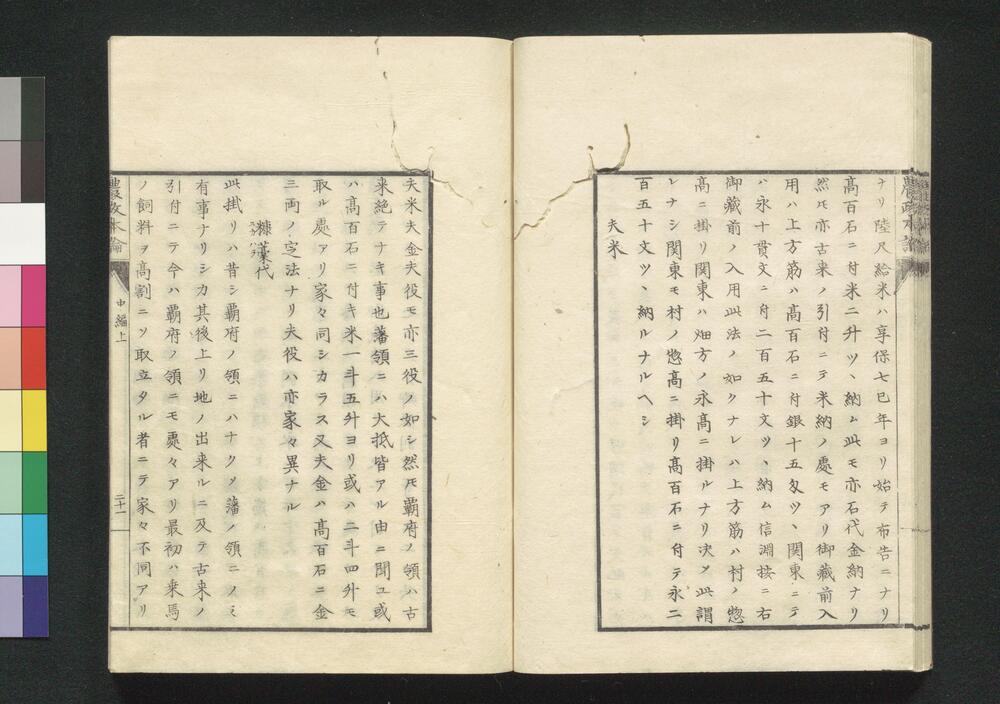 ナリ陸尺給米ハ享保七巳年ヨリ始テ布告ニナリ
高百石ニ付米二升ツヽ納ム此モ亦石代金納ナリ
然𪜈亦古来ノ引付ニテ米納ノ處モアリ御藏前入
用ハ上方筋ハ高百石ニ付銀十五匁ツヽ関東ニテ
ハ永十貫文ニ付二百五十文ツヽ納ム信淵按ニ右
御藏前ノ入用此法ノ如クナレハ上方筋ハ村ノ惣
高ニ掛リ関東ハ畑方ノ永高ニ掛ルナリ决乄此謂
レナシ関東モ村ノ惣高ニ掛リ高百石ニ付テ永二
百五十文ツヽ納ルナルヘシ
夫米
夫米夫金夫役モ亦三役ノ如シ然𪜈覇府ノ領ハ古
来絶テナキ事也藩領ニハ大抵皆アル由ニ聞ユ或
ハ高百石ニ付キ米一斗五升ヨリ或ハ二斗四升モ
取ル處アリ家々同シカラス又夫金ハ高百石ニ金
三両ノ定法ナリ夫役ハ亦家々異ナル
糠藁代
此掛リハ昔シ覇府ノ領ニハナク乄藩ノ領ニノミ
有事ナリシカ其後上リ地ノ出来ルニ及テ古来ノ
引付ニテ今ハ覇府ノ領ニモ處々アリ最初ハ乗馬
ノ飼料ヲ高割ニ乄取立タル者ニテ家々不同アリ
農政本論
中編上
二十一